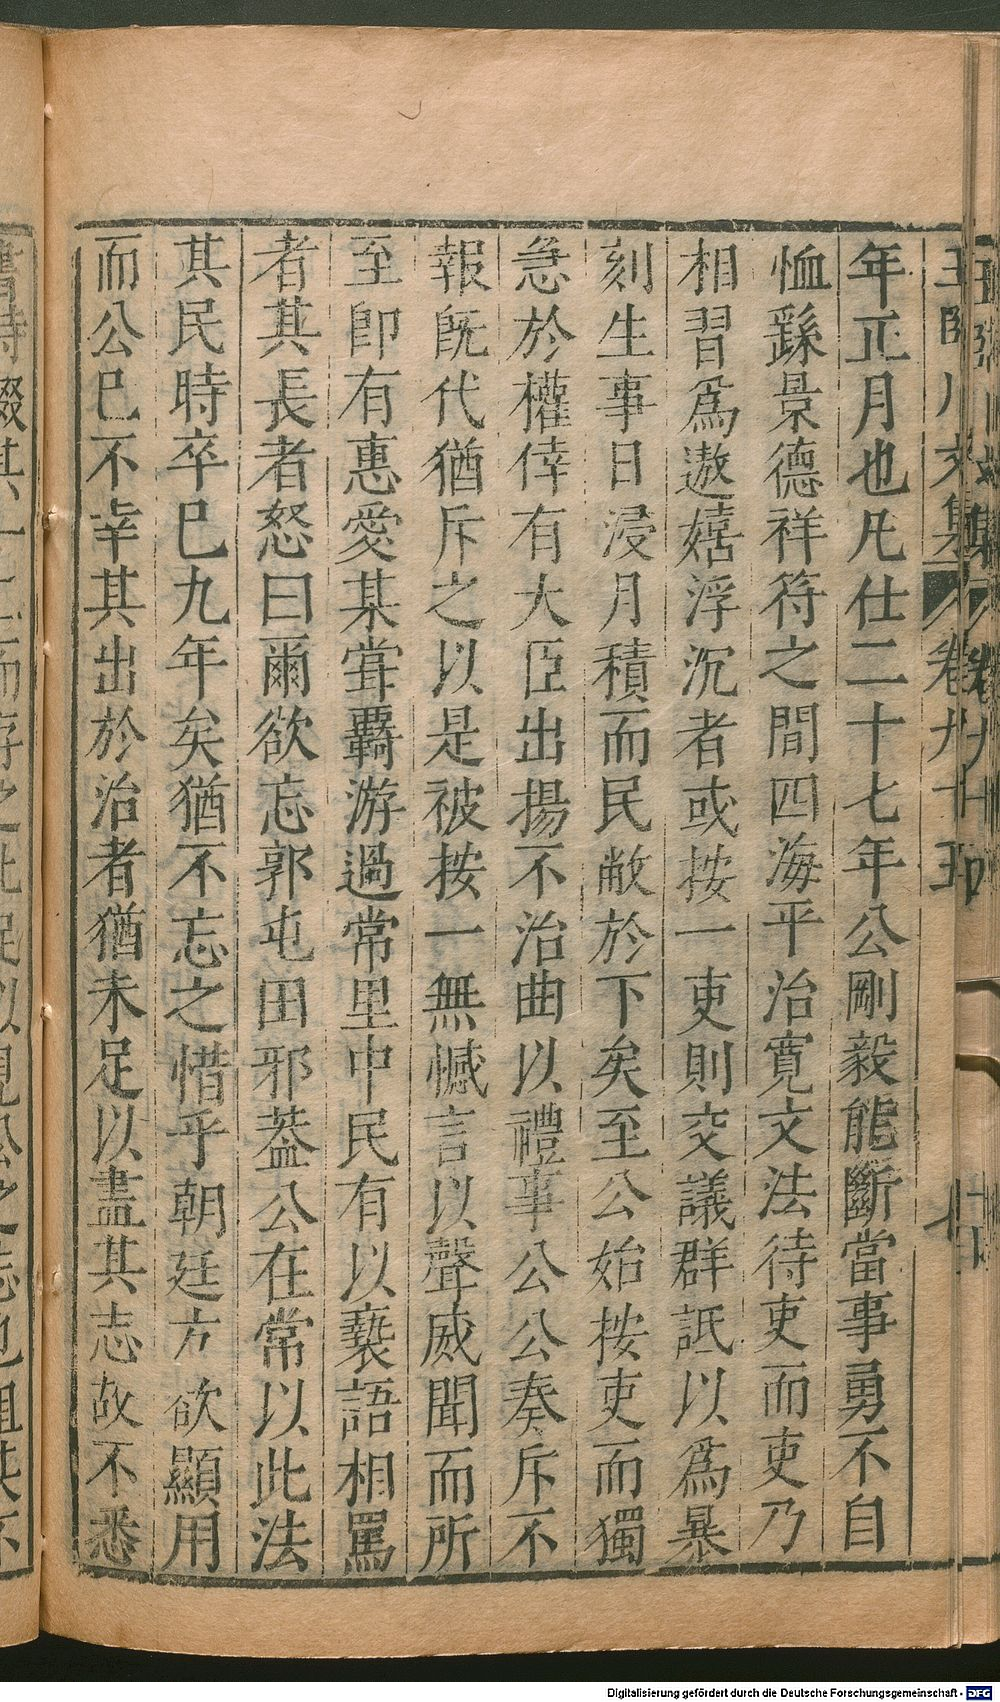 王臨川文集 卷九十五 十
年正月也凡仕二十七年公剛毅能斷當事勇不自
恤繇景德祥符之間四海平治寛文法待吏而吏乃
相習爲遨嬉浮沉者或按一吏則交議群詆以爲暴
刻生事日浸月積而民敝於下矣至公始按吏而獨
急於權倖有大臣出揚不治曲以禮事公公奏斥不
報旣代猶斥之以是被按一無憾言以聲威聞而所
至卽有惠愛某甞覊游過常里中民有以褻語相罵
者其長者怒曰爾欲忘郭屯田邪葢公在常以此法
其民時卒巳九年矣猶不忘之惜乎朝廷方欲顯用
而公巳不幸其出於治者猶未足以盡其志故不悉
Digitalisierung gefördert durch die Deutsche Forschungsgemeinschaft - DFG